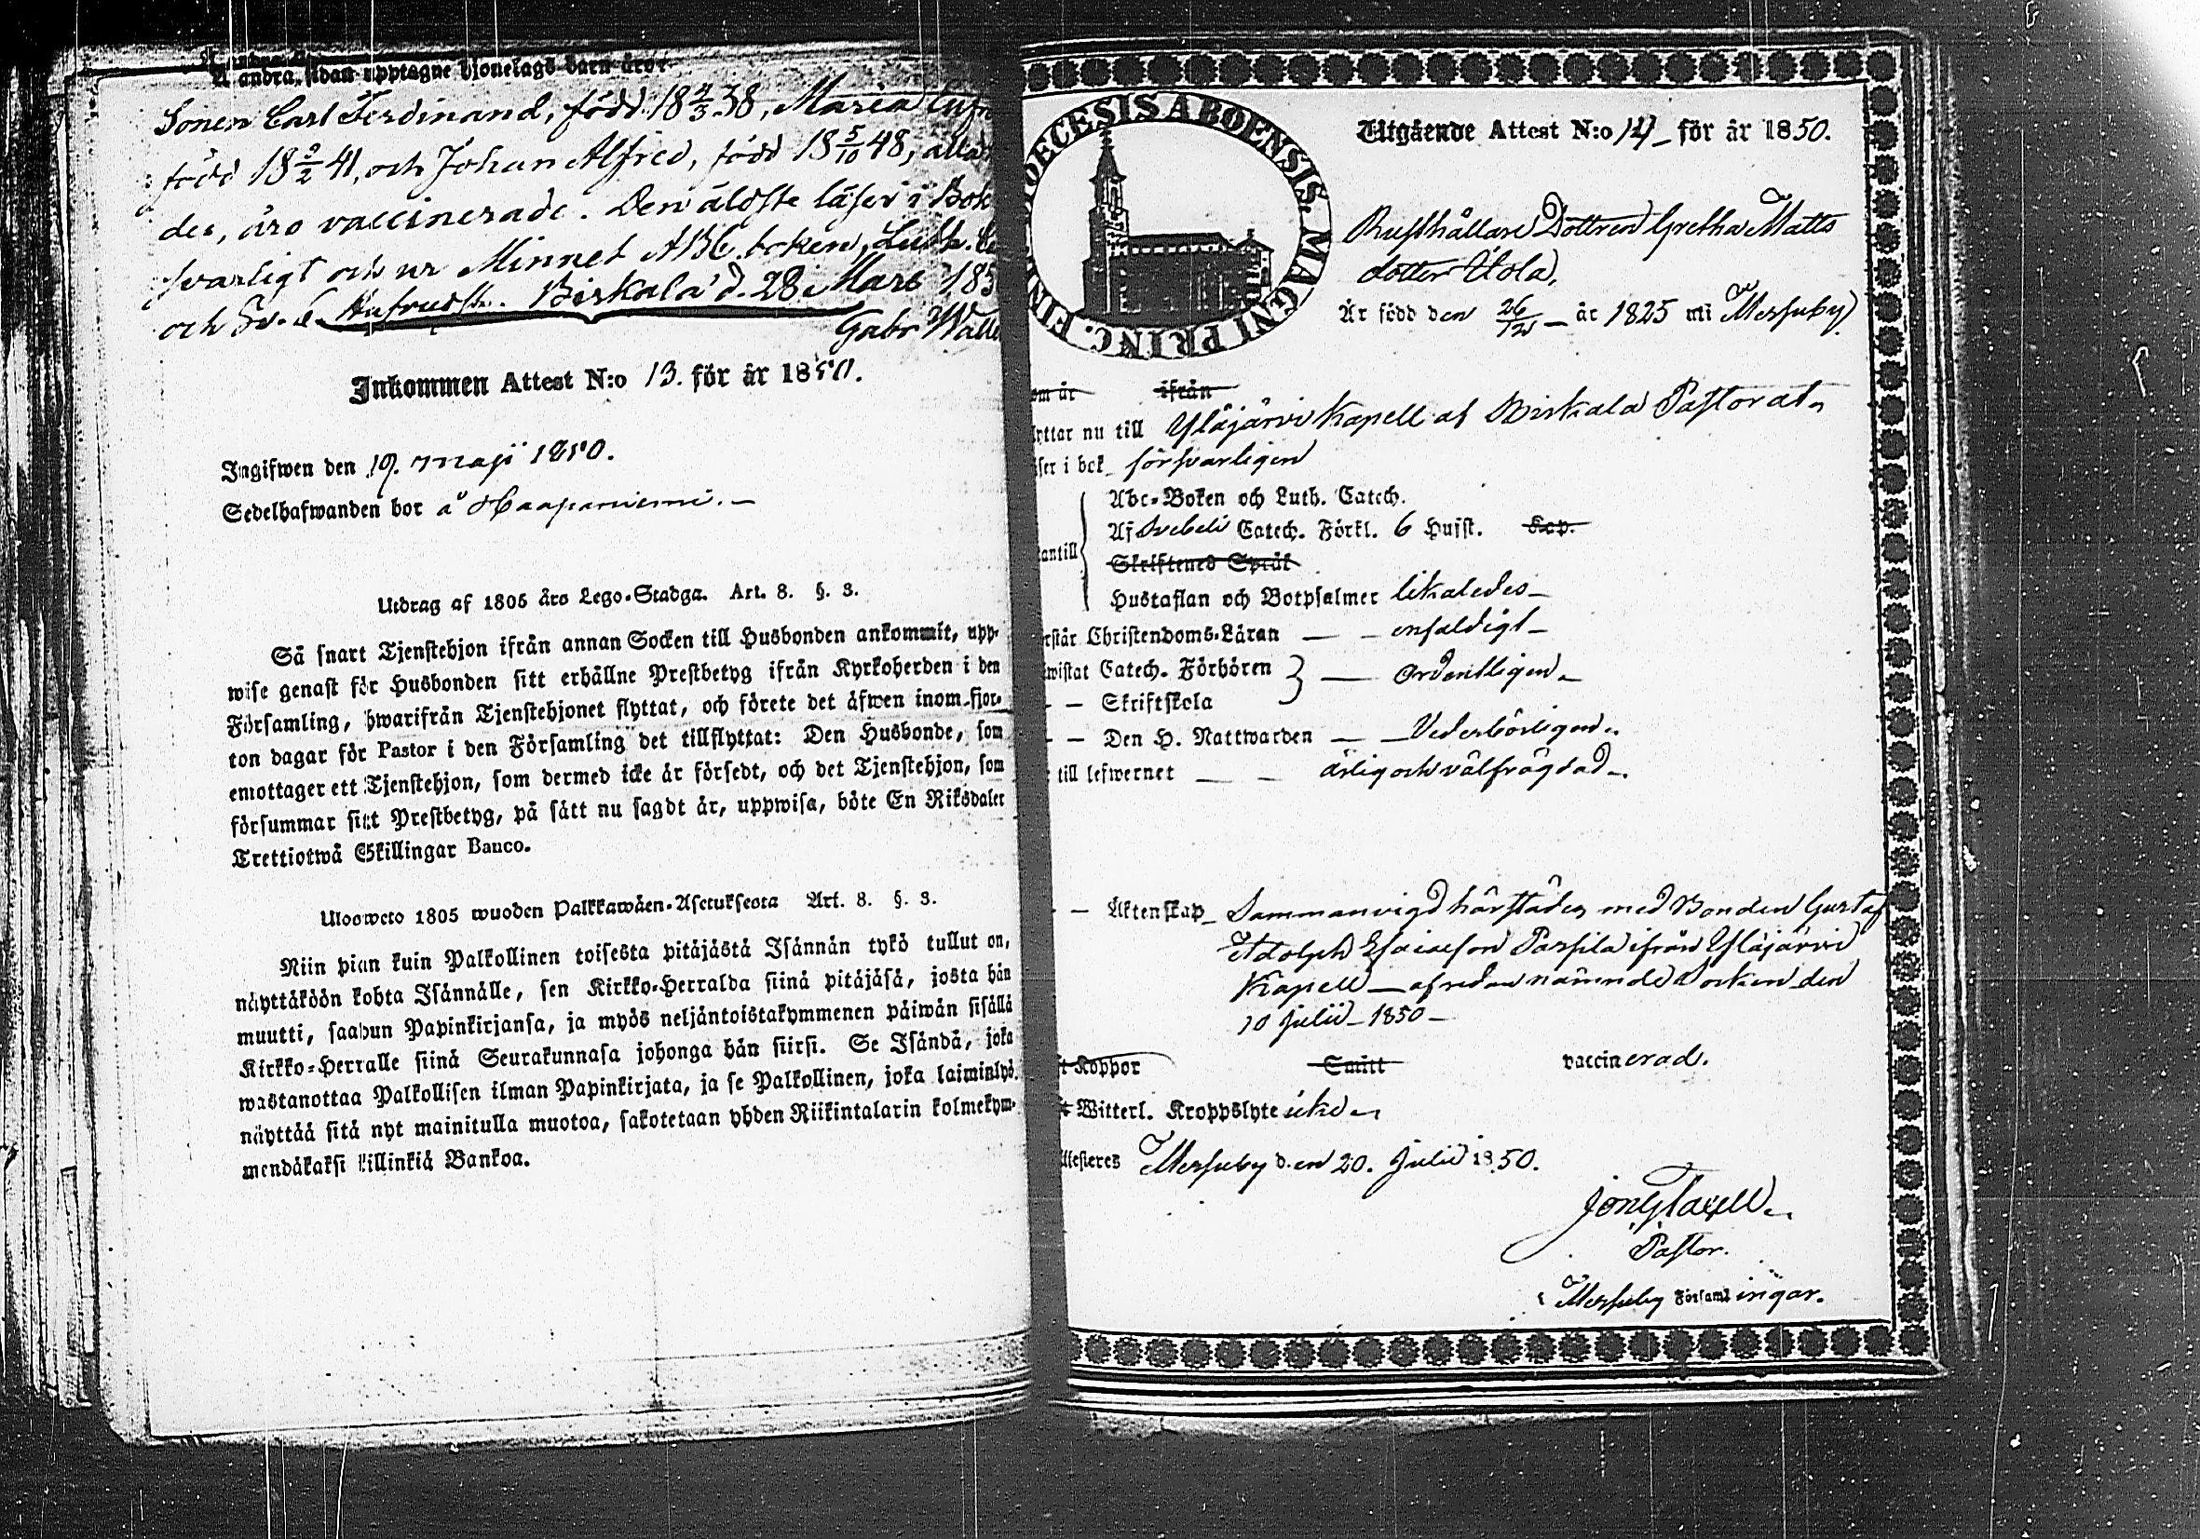 å andra sidan upptagne hjonelags barn äro:
Sonen Carl Ferdinand, född 18 4/3 38, Maria
född 18 9/2 41, och Johan Alfred, född 18 5/10 48,
der, äro vaccinerade. Den äldste läser i Bok
svarligt och ur Minnet ABC boken, Luth.
och Birkala d. 28 Mars 185
Gabr
Inkommen Attest N:o 13. för år 1850.
Ingifwen den 19. maji 1850.
Sedelhafwanden bor å Haapaniemi.
Utdrag af 1805 års Lego-Stadga. Art. 8. §. 3.
Så snart Tjenstehjon ifrån annan Socken till Husbonden ankommit, upp-
wise genast för Husbonden sitt erhållne Prestbetyg ifrån Kyrkoherden i den
Församling, hwarifrån Tjenstehjonet flyttat, och förete det äfwen inom fjor-
ton dagar för Pastor i den Församling det tillflyttat: Den Husbonde, som
emottager ett Tjenstehjon, som dermed icke är försedt, och det Tjenstehjon, som
försummar sitt Prestbetyg, på sätt nu sagdt är, uppwisa, böte En Riksdaler
Trettiotwå Skillingar Banco.
Uloosweto 1805 wuoden Palkkawäen-Asetuksesta Art. 8. §. 3.
Niin pian kuin Palkollinen toisesta pitäjästä Isännän tykö tullut on,
näyttäköön kohta Isännälle, sen Kirkko-Herralda siinä pitäjäsä, josta hän
muutti, saahun Papinkirjansa, ja myös neljäntoistakymmenen päiwän sisällä
Kirkko-Herralle siinä Seurakunnasa johonga hän siirsi. Se Isändä, joka
wastanottaa Palkollisen ilman Papinkirjata, ja se Palkollinen, joka laiminlyö
näyttää sitä nyt mainitulla muotoa, sakotetaan yhden Riikintalarin kolmekym-
mendäkaksi killinkiä Bankoa.
DIOECESIS ABOENSIS. MAGNI PRINC. FIN
Utgående Attest N:o 14 för år 1850.
Rusthållare Dottren Gretha Matts
dotter Uola,
Är född den 26/12 år 1825 i Messuby
om är ifrån
yttar nu till Yläjärvi Kapell af Birkala Pastorat
äser i bok försvarligen
Abc-Boken och Luth. Catech.
antill Af Svebelii Catech. Förkl. 6 Hufst. Kap.
Skriftenes Språk
Hustaflan och Botpsalmer likaledes
rstår Christendoms-Läran — enfaldigt
wistat Catech. Förhören — ordentligen
— Skriftskola
— Den H. Nattwarden — Vederbörligen
till lefwernet — ärlig och välfrägdad
— Äktenskap Sammanvigd härstädes med Bonden Gustaf
Adolph Esaiasson Parsila ifrån Yläjärvi
Kapell af redan nämnde Socken den
10 Julii 1850
t Koppor Smitt vaccinerad.
Witterl. Kroppslyte icke
ttesteres Messuby den 20. Julii 1850.
Pastor.
i Messuby Församlingar.